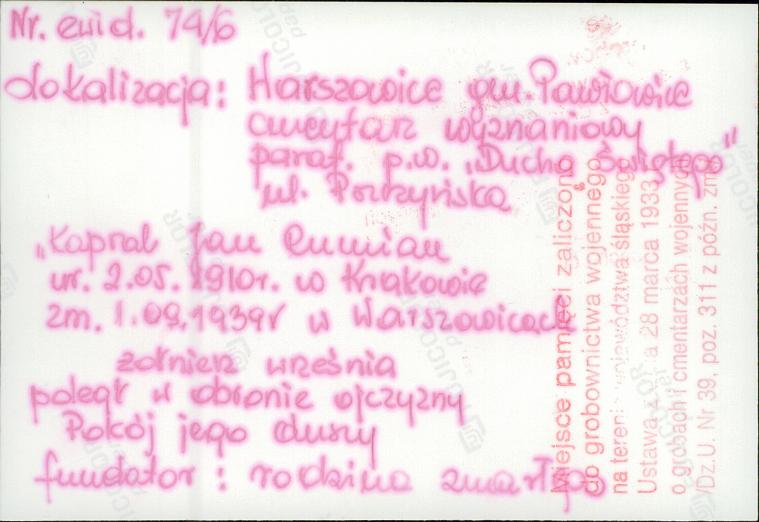 Nr. ewid. 74/6
Lokalizacja: Warszowice gm. Pawłowice
cmentarz wyznaniowy
paraf. p.w. „Ducha Świętego"
ul. Pszczyńska
„Kapral Jan
ur. 2.05.1910r. w Krakowie
zm. 1.09.1939r w Warszowicach
żołnierz września
poległ w obronie ojczyzny
Pokój jego duszy
fundator: rodzina zmarłego
Miejsce pamięci zaliczono
do grobownictwa wojennego
na terenie województwa śląskiego
Ustawa z dnia 28 marca 1933
o grobach i cmentarzach wojennych
Dz.U. Nr 39, poz. 311 z późn. zm.
FUJICOLOR